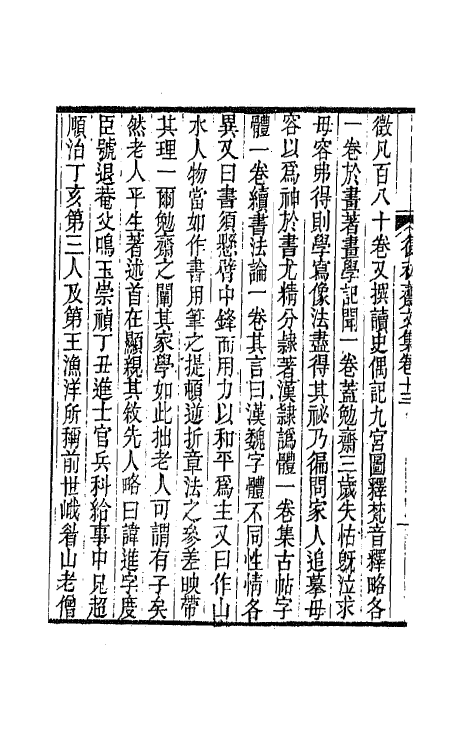 徵凡百八十卷又撰讀史偶記九宮圖釋梵音釋略各
一卷於畫著畫學記聞一卷蓋勉齋三歲失怙旣泣求
毋容弗得則學寫像法盡得其祕乃徧問家人追摹毋
容以爲神於書尤精分隷著漢隷譌體一卷集古帖字
體一卷續書法論一卷其言曰漢魏字體不同性情各
異又曰書須懸臂中鋒而用力以和平爲主又曰作山
水人物當如作書用筆之提頓遊折章法之參差映帶
其理一爾勉齋之闡其家學如此拙老人可謂有子矣
然老人平生著述首在顯親其敘先人略曰諱進字度
臣號退菴父鳴玉崇禎丁丑進士官兵科給事中兄超
順治丁亥第三人及第王漁洋所稱前世峨眉山老僧
文集卷十三